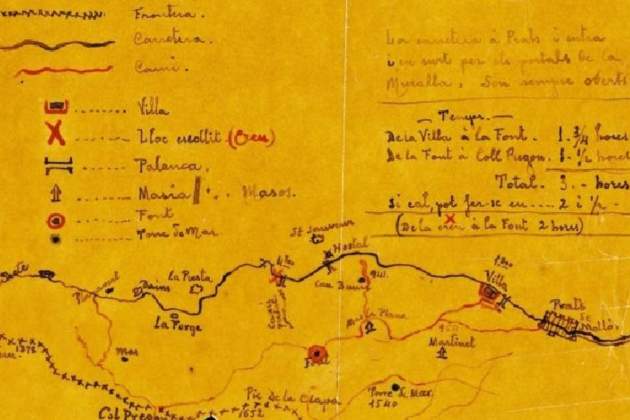 Frontera.
Carretera.
Camí.
Villa
Lloc escollit (Creu)
Palanca.
Masia Masos.
Font
Torre de Mar
La carretera à Prats i entra
i en surt per els portals de la
Muralla. Son sempre oberts
Temps.
De la Villa à la Font. 1. 3/4 hores
De la Font à Coll Pregon. 1 1/2 hores
Total. 3. hores
Si cal, pot fer-se en.... 2 i 1/2.
(De la creu à la Font 2 hores)
St Sauveur
Hostal
La Presta
La Forge
Villa
Prats
de
Molló.
Martinet
Font
Mas
1376
Col Pregon
Pic de la
1652
Torre de Mar.
1540